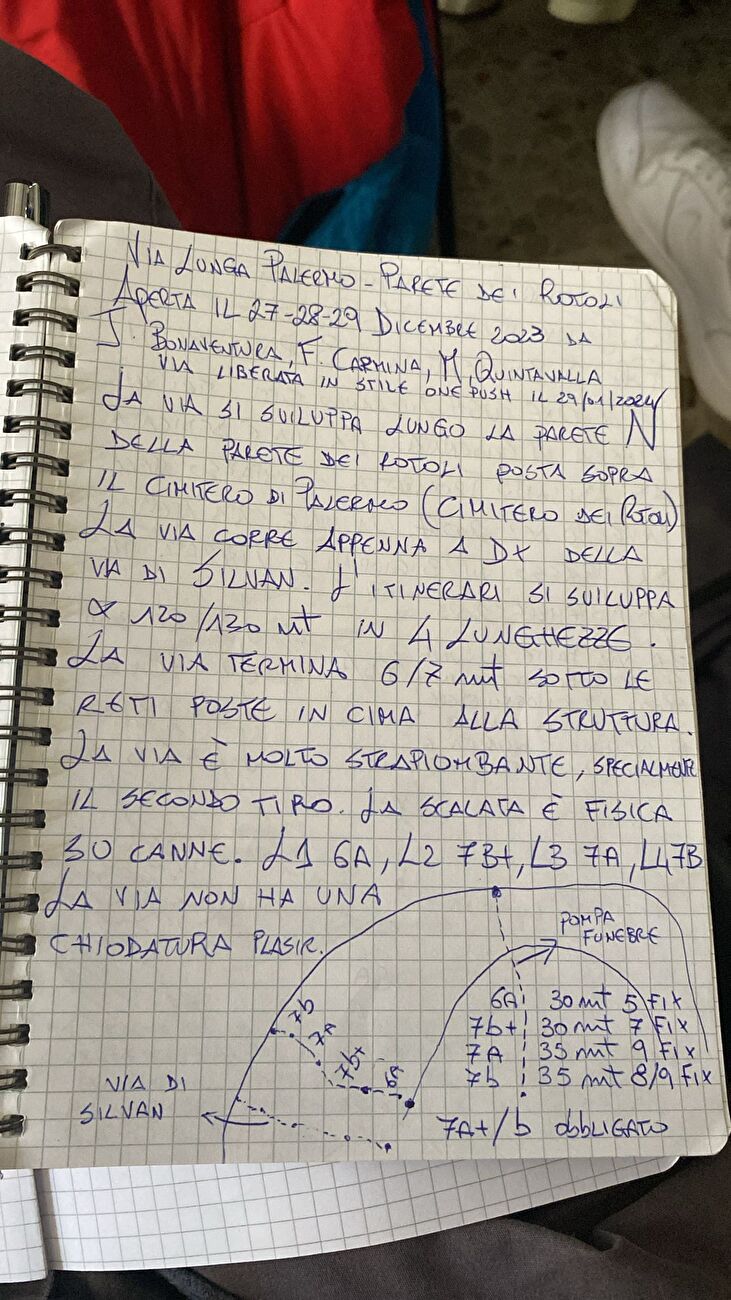 VIA LUNGA PALERMO - PARETE DEI ROTOLI
APERTA IL 27-28-29 DICEMBRE 2023 DA
J. BONAVENTURA, F. CARMINA, M. QUINTAVALLA
VIA LIBERATA IN STILE ONE PUSH IL 29/01/2024
LA VIA SI SVILUPPA LUNGO LA PARETE N
DELLA PARETE DEI ROTOLI POSTA SOPRA
IL CIMITERO DI PALERMO (CIMITERO DEI ROTOLI)
LA VIA CORRE APPENNA A DX DELLA
VIA DI SILVAN. L'ITINERARI SI SVILUPPA
X 120/130 mt IN 4 LUNGHEZZE.
LA VIA TERMINA 6/7 mt SOTTO LE
RETI POSTE IN CIMA ALLA STRUTTURA.
LA VIA È MOLTO STRAPIOMBANTE, SPECIALMENTE
IL SECONDO TIRO. LA SCALATA È FISICA
SU CANNE. L1 6A, L2 7B+, L3 7A, L4 7B
LA VIA NON HA UNA
CHIODATURA PLASIR.
POMPA
FUNEBRE
6A 30 mt 5 FIX
7b+ 30 mt 7 FIX
7A 35 mt 9 FIX
7b 35 mt 8/9 FIX
7A+/b obbLIGATO
7b
7A
7b+
6A
VIA DI
SILVAN